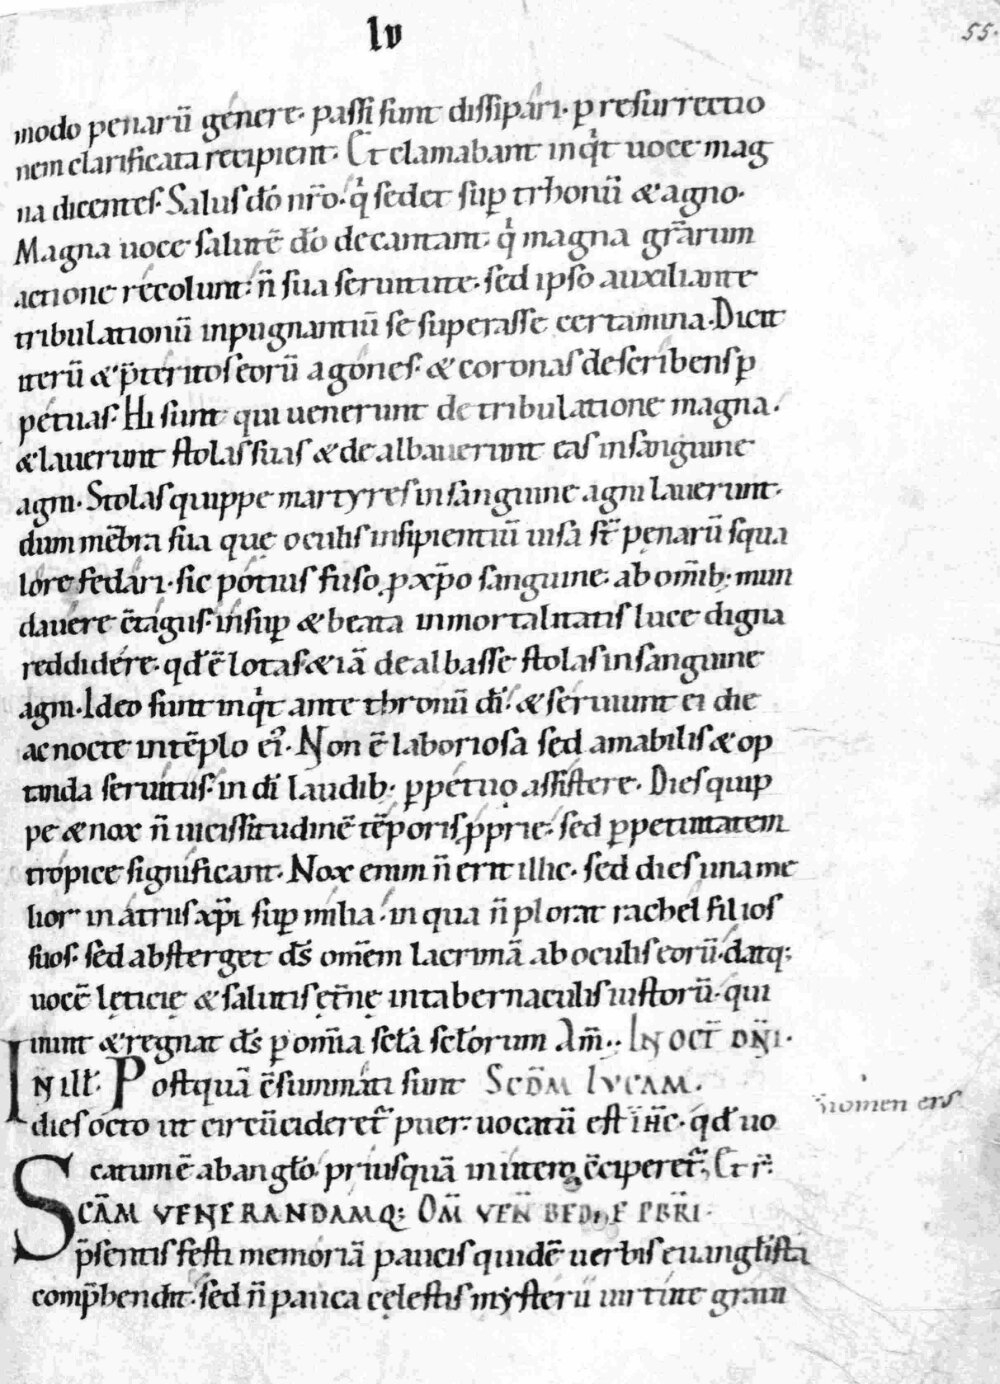 lv
55.
modo penarū genere. passi sunt dissipari. p resurrectio
nem clarificata recipient. Et clamabant inqͥt uoce mag
na dicentes. Salus dō nrō. qͥ sedet sup trhonū & agno.
Magna uoce salutē dō decantant. qͥ magna grārum
actione recolunt. n̄ sua seruitute. sed ipso auxiliante
tribulationū inpugnantiū se superasse certamina. Dicit
iterū & p̄teritos eorū agones. & coronas describens p
petuas. Hi sunt qui uenerunt de tribulatione magna.
& lauerunt stolas suas & dealbauerunt eas in sanguine
agni. Stolas quippe martyres in sanguine agni lauerunt.
dum mēbra sua que oculis insipientiū uisa st̄ penarū squa
lore fedari. sic potius fuso p xp̄o sanguine. ab om̄ib; mun
dauere c̄tagiis. insup & beata inmortalitatis luce digna
reddidere. qd ē lotas & iā dealbasse stolas in sanguine
agni. Ideo sunt inqͥt ante thronū dī. & seruiunt ei die
ac nocte in tēplo eiꝰ. Non ē laboriosa sed amabilis & op
tanda seruitus. in dī laudib; ppetuo assistere. Dies quip
pe & nox n̄ uicissitudinē tēporis pprie. sed ppetuitatem
tropice significant. Nox enim n̄ erit illic. sed dies una me
lior in atriis xp̄i sup milia. in qua n̄ plorat rachel filios
suos. sed absterget ds̄ om̄em lacrimā ab oculis eorū. datq;
uocē lęticię & salutis et̄nę in tabernaculis iustorū. qui
uiuit & regnat ds̄ p om̄ia scła scłorum Am̄.. IN OCT̄ DN̄I.
IN illł. Postquā c̄summati sunt SCD̄M LVCAM.
dies octo ut circūcideret̄ puer. uocatū est nomen eiꝰ IHC. qd uo
catum ē ab angło. priusquā in utero c̄ciperet̄. Et r̄.
SCĀM VENERANDAMQ; OM̄ VEN̄ BEDAE PBR̄I.
p̄sentis festi memoriā paucis quidē uerbis euangłista
comp̄hendit. sed n̄ pauca cęlestis mysterii uirtute graui